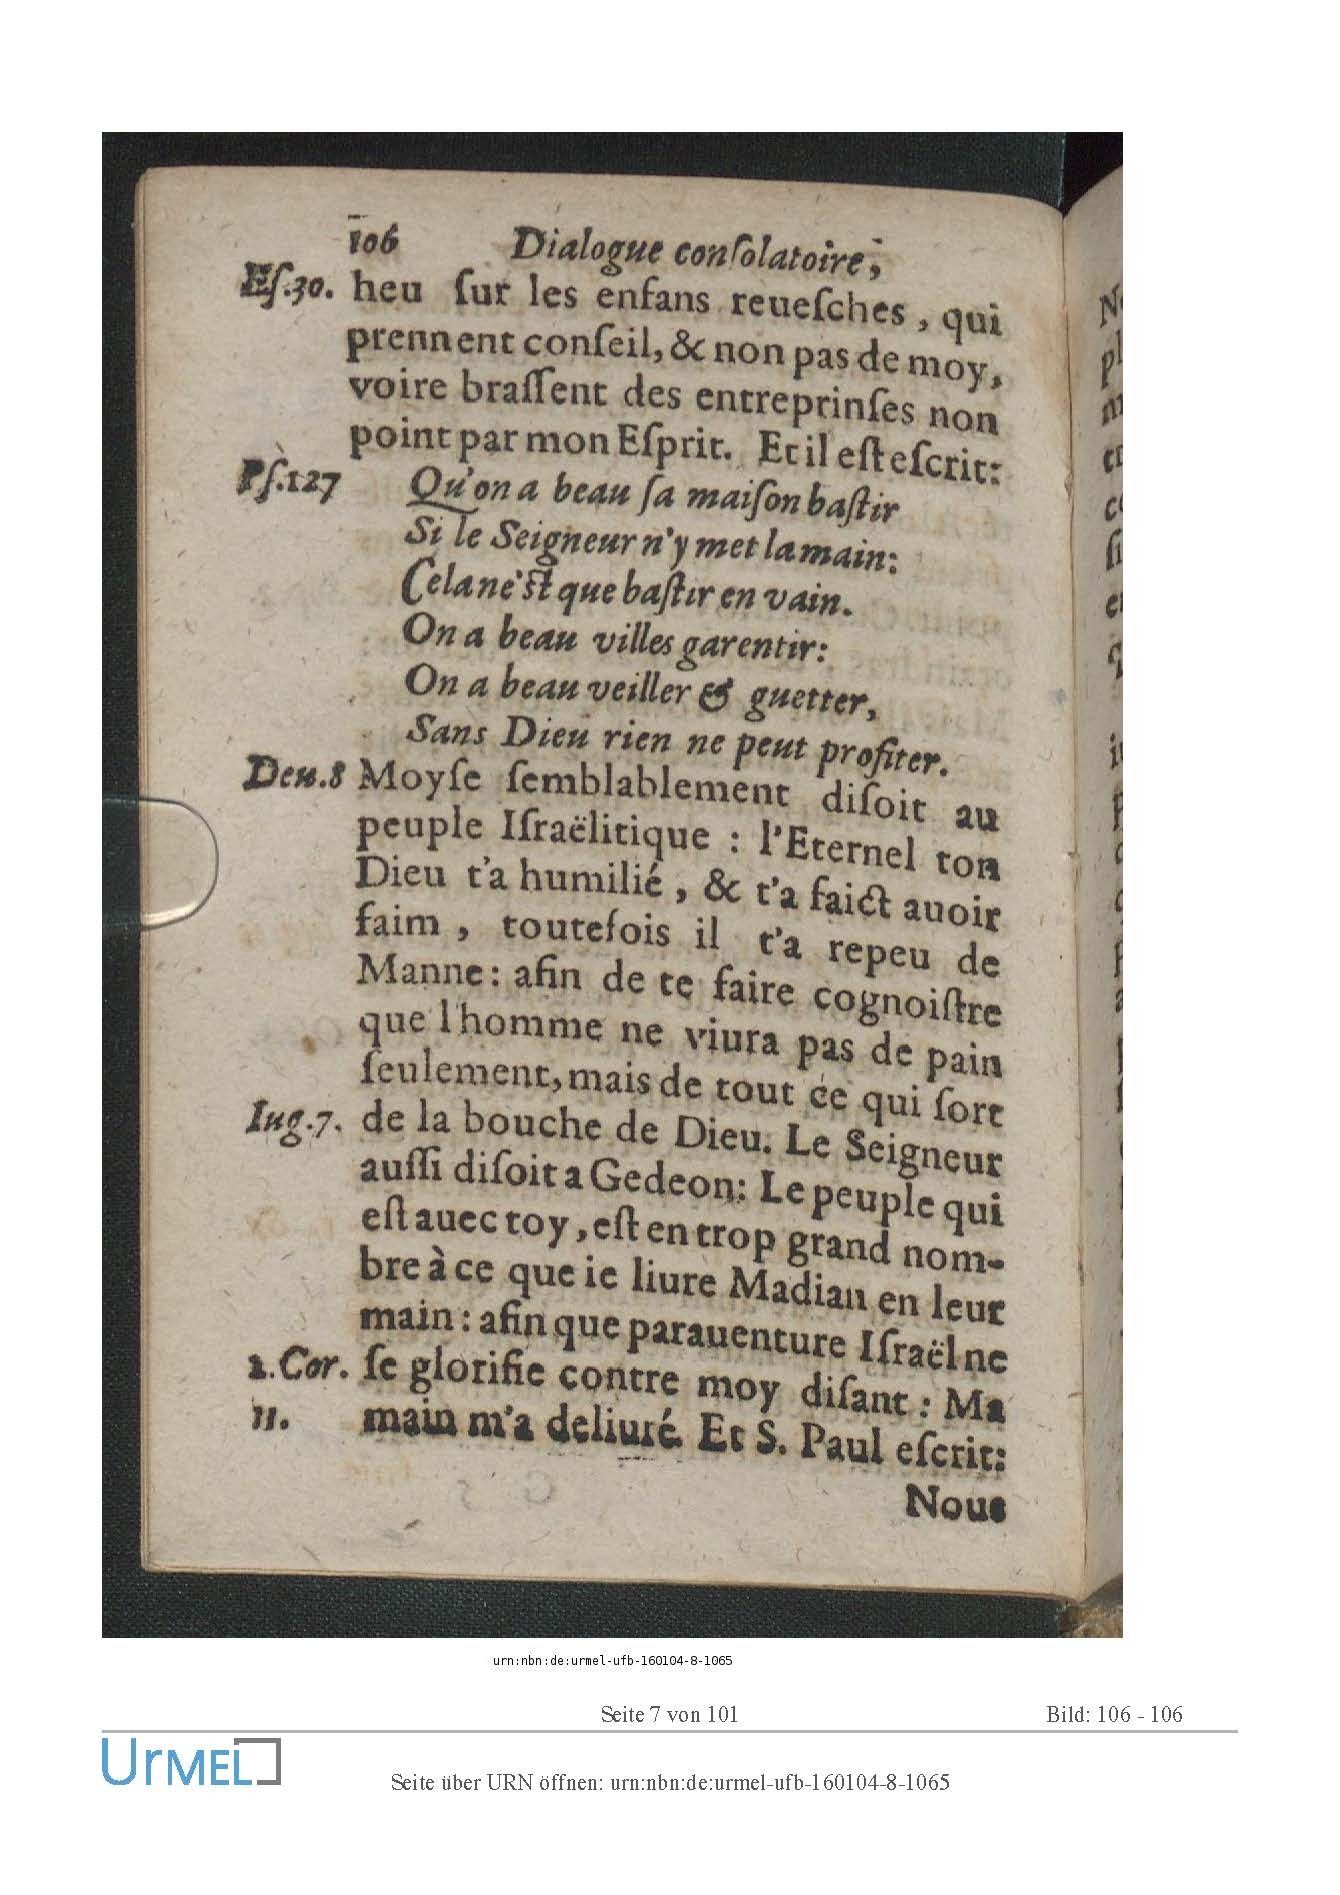 106 Dialogue conſolatoire,
Eſ.30. heu ſur les enfans reueſches, qui
prennent conſeil, & non pas de moy,
voire braſſent des entreprinſes non
point par mon Eſprit. Et il eſt eſcrit:
Pſ.127 Qu'on a beau ſa maiſon baſtir
Si le Seigneur n'y met la main:
Cela ne'ſt que baſtir en vain.
On a beau villes garentir:
On a beau veiller & guetter,
Sans Dieu rien ne peut profiter.
Deu.8 Moyſe ſemblablement diſoit au
peuple Iſraëlitique : l'Eternel ton
Dieu t'a humilié, & t'a faict auoir
faim, toutefois il t'a repeu de
Manne: afin de te faire cognoiſtre
que l'homme ne viura pas de pain
ſeulement, mais de tout ce qui ſort
Iug.7. de la bouche de Dieu. Le Seigneur
auſſi diſoit a Gedeon: Le peuple qui
eſt auec toy, eſt en trop grand nom-
bre à ce que ie liure Madian en leur
main : afin que parauenture Iſraël ne
2.Cor. ſe glorifie contre moy diſant : Ma
11. main m'a deliuré. Et S. Paul eſcrit:
Nous
urn:nbn:de:urmel-ufb-160104-8-1065
Seite 7 von 101 Bild: 106 - 106
UrMEL
Seite über URN öffnen: urn:nbn:de:urmel-ufb-160104-8-1065